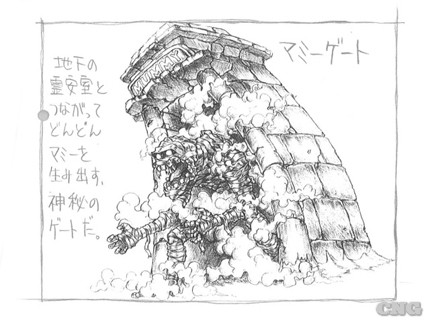 マミーゲート
地下の
霊安室と
つながって
どんどん
マミーを
生み出す、
神秘の
ゲートだ。
CNG